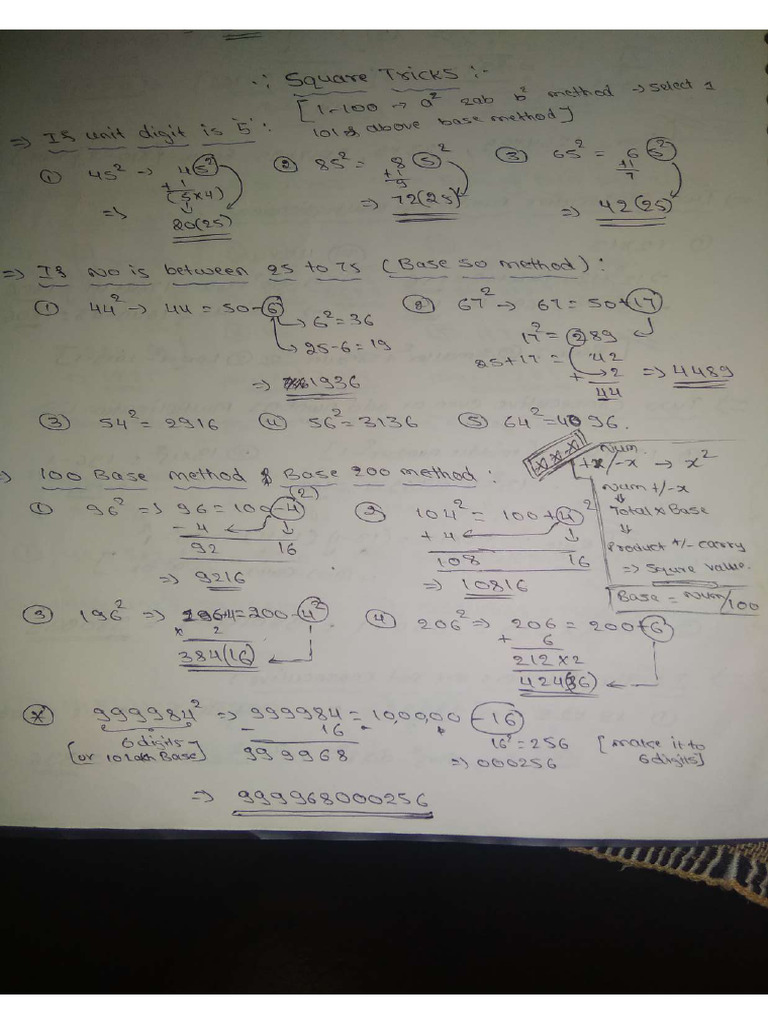 ∴ Square Tricks :-
[1-100 → a² 2ab b² method → select 1
101 & above base method]
⇒ If unit digit is '5' :
① 45² → 45²
+1
(5×4)
⇒ 20(25)
② 85² = 8 5²
+1
9
⇒ 72(25)
③ 65² = 6 5²
+1
7
⇒ 42(25)
⇒ If No is between 25 to 75 (Base 50 method) :
① 44² → 44 = 50-6
→ 6²=36
→ 25-6=19
⇒ 1936
② 67² → 67 = 50+17
17² = 289
25+17 = 42
+ 2
44
⇒ 4489
③ 54² = 2916 ④ 56² = 3136 ⑤ 64² = 4096.
⇒ 100 Base method & Base 200 method :
① 96² ⇒ 96 = 100-4 (2)
- 4
92 16
⇒ 9216
② 104² = 100+4 ²
+ 4
108 16
⇒ 10816
Num
+x/-x → x²
Num +/-x
Total × Base
Product +/- carry
⇒ Square value.
Base = Num/100
③ 196² ⇒ =200-4²
× 2
384(16)
④ 206² ⇒ 206 = 200+6
+ 6
212×2
424(36)
⊛ 999984² ⇒ 999984 = 10,00,00 -16
6 digits
[or 10 Lakh Base]
- 16
999968
16²=256 [make it to
⇒ 000256 6 digits]
⇒ 999968000256